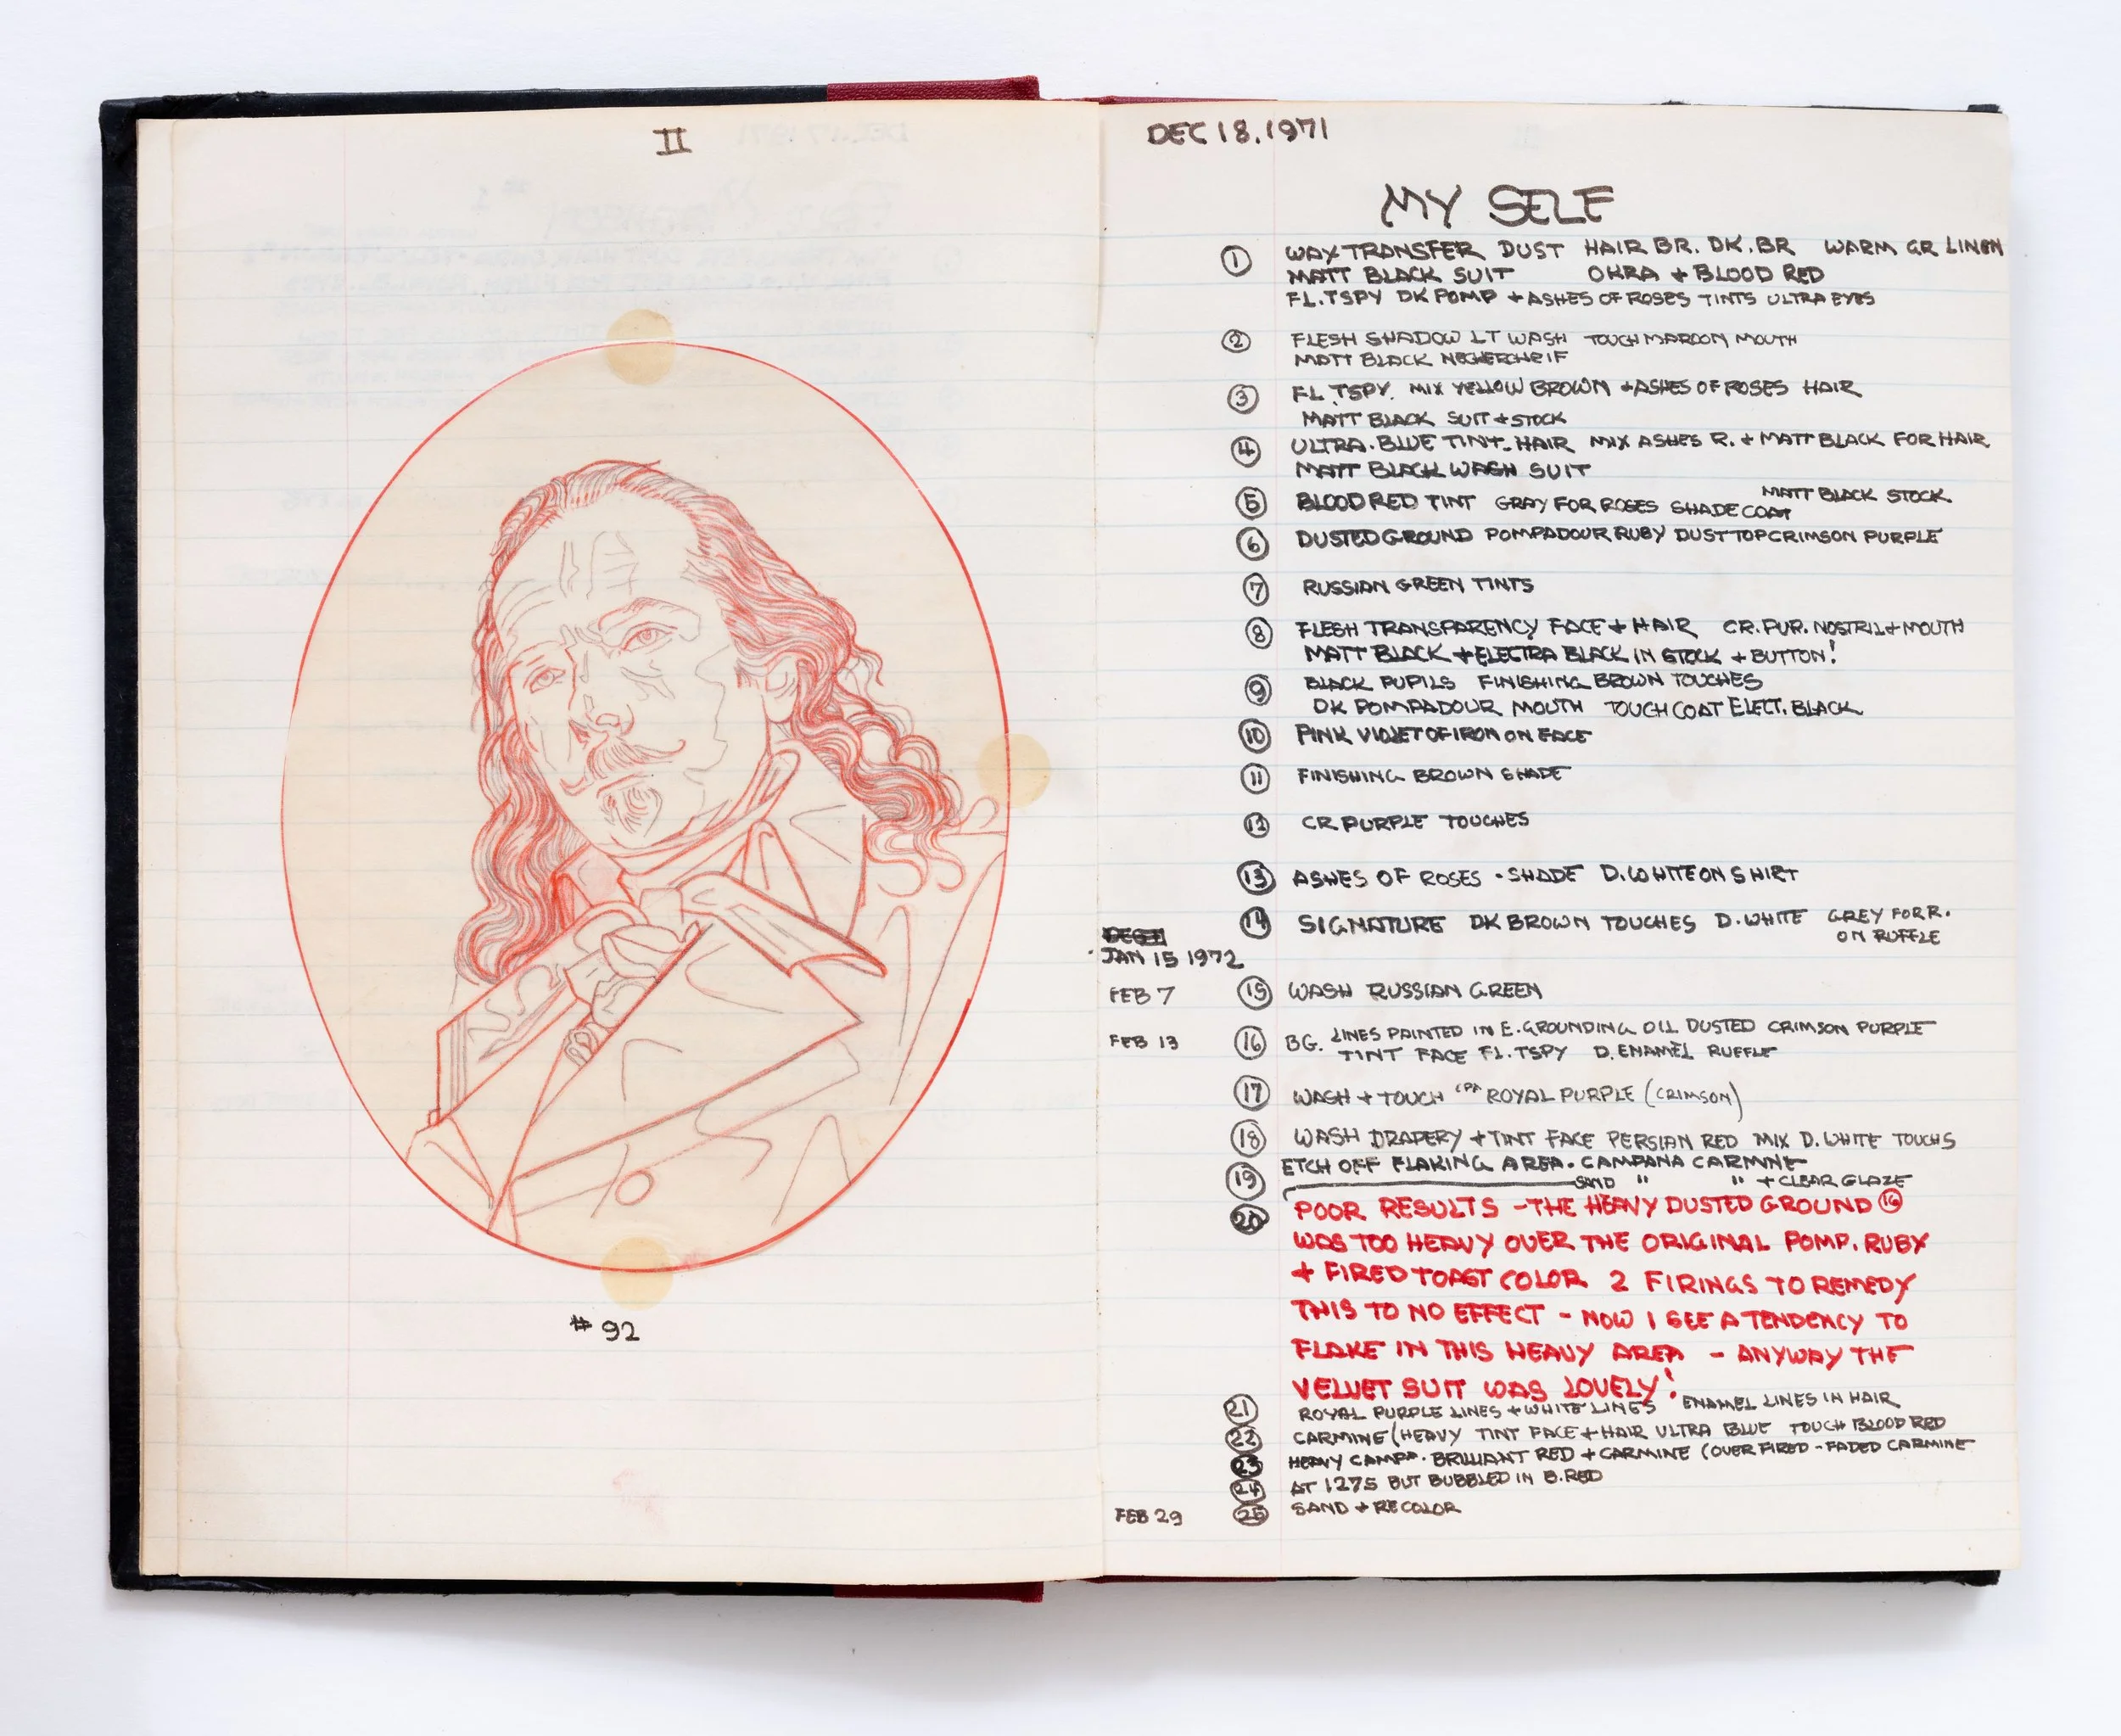 II
# 92
DEC 18.1971
MY SELF
① WAX TRANSFER DUST HAIR BR. DK. BR WARM GR LINEN
MATT BLACK SUIT OKRA + BLOOD RED
FL. TSPY DK POMP + ASHES OF ROSES TINTS ULTRA EYES
② FLESH SHADOW LT WASH TOUCH MAROON MOUTH
MATT BLACK NECHERCHEIF
③ FL. TSPY. MIX YELLOW BROWN + ASHES OF ROSES HAIR
MATT BLACK SUIT + STOCK
④ ULTRA. BLUE TINT-HAIR MIX ASHES R. + MATT BLACK FOR HAIR
MATT BLACK WASH SUIT
⑤ BLOOD RED TINT GRAY FOR ROSES SHADE COAT MATT BLACK STOCK
⑥ DUSTED GROUND POMPADOUR RUBY DUST TOP CRIMSON PURPLE
⑦ RUSSIAN GREEN TINTS
⑧ FLESH TRANSPARENCY FACE + HAIR CR. PUR. NOSTRIL + MOUTH
MATT BLACK + ELECTRA BLACK IN STOCK + BUTTON!
⑨ BLACK PUPILS FINISHING BROWN TOUCHES
DK POMPADOUR MOUTH TOUCH COAT ELECT. BLACK
⑩ PINK VIOLET OF IRON ON FACE
⑪ FINISHING BROWN SHADE
⑫ CR PURPLE TOUCHES
⑬ ASHES OF ROSES - SHADE D. WHITE ON SHIRT
⑭ SIGNATURE DK BROWN TOUCHES D. WHITE GREY FOR R.
ON RUFFLE
JAN 15 1972
FEB 7 ⑮ WASH RUSSIAN GREEN
FEB 13 ⑯ BG. LINES PAINTED IN E. GROUNDING OIL DUSTED CRIMSON PURPLE
TINT FACE FL. TSPY D. ENAMEL RUFFLE
⑰ WASH + TOUCH ROYAL PURPLE (CRIMSON)
⑱ WASH DRAPERY + TINT FACE PERSIAN RED MIX D. WHITE TOUCHS
⑲ ETCH OFF FLAKING AREA. CAMPANA CARMINE
SAND " " + CLEAR GLAZE
⑳ POOR RESULTS - THE HEAVY DUSTED GROUND ⑯
WAS TOO HEAVY OVER THE ORIGINAL POMP. RUBY
+ FIRED TOAST COLOR 2 FIRINGS TO REMEDY
THIS TO NO EFFECT - NOW I SEE A TENDENCY TO
FLAKE IN THIS HEAVY AREA - ANYWAY THE
VELVET SUIT WAS LOVELY!
㉑ ROYAL PURPLE LINES + WHITE LINES ENAMEL LINES IN HAIR
㉒ CARMINE (HEAVY TINT FACE + HAIR ULTRA BLUE TOUCH BLOOD RED
㉓ HEAVY CAMPA. BRILLIANT RED + CARMINE (OVER FIRED - FADED CARMINE
㉔ AT 1275 BUT BUBBLED IN B. RED
FEB 29 ㉕ SAND + RECOLOR